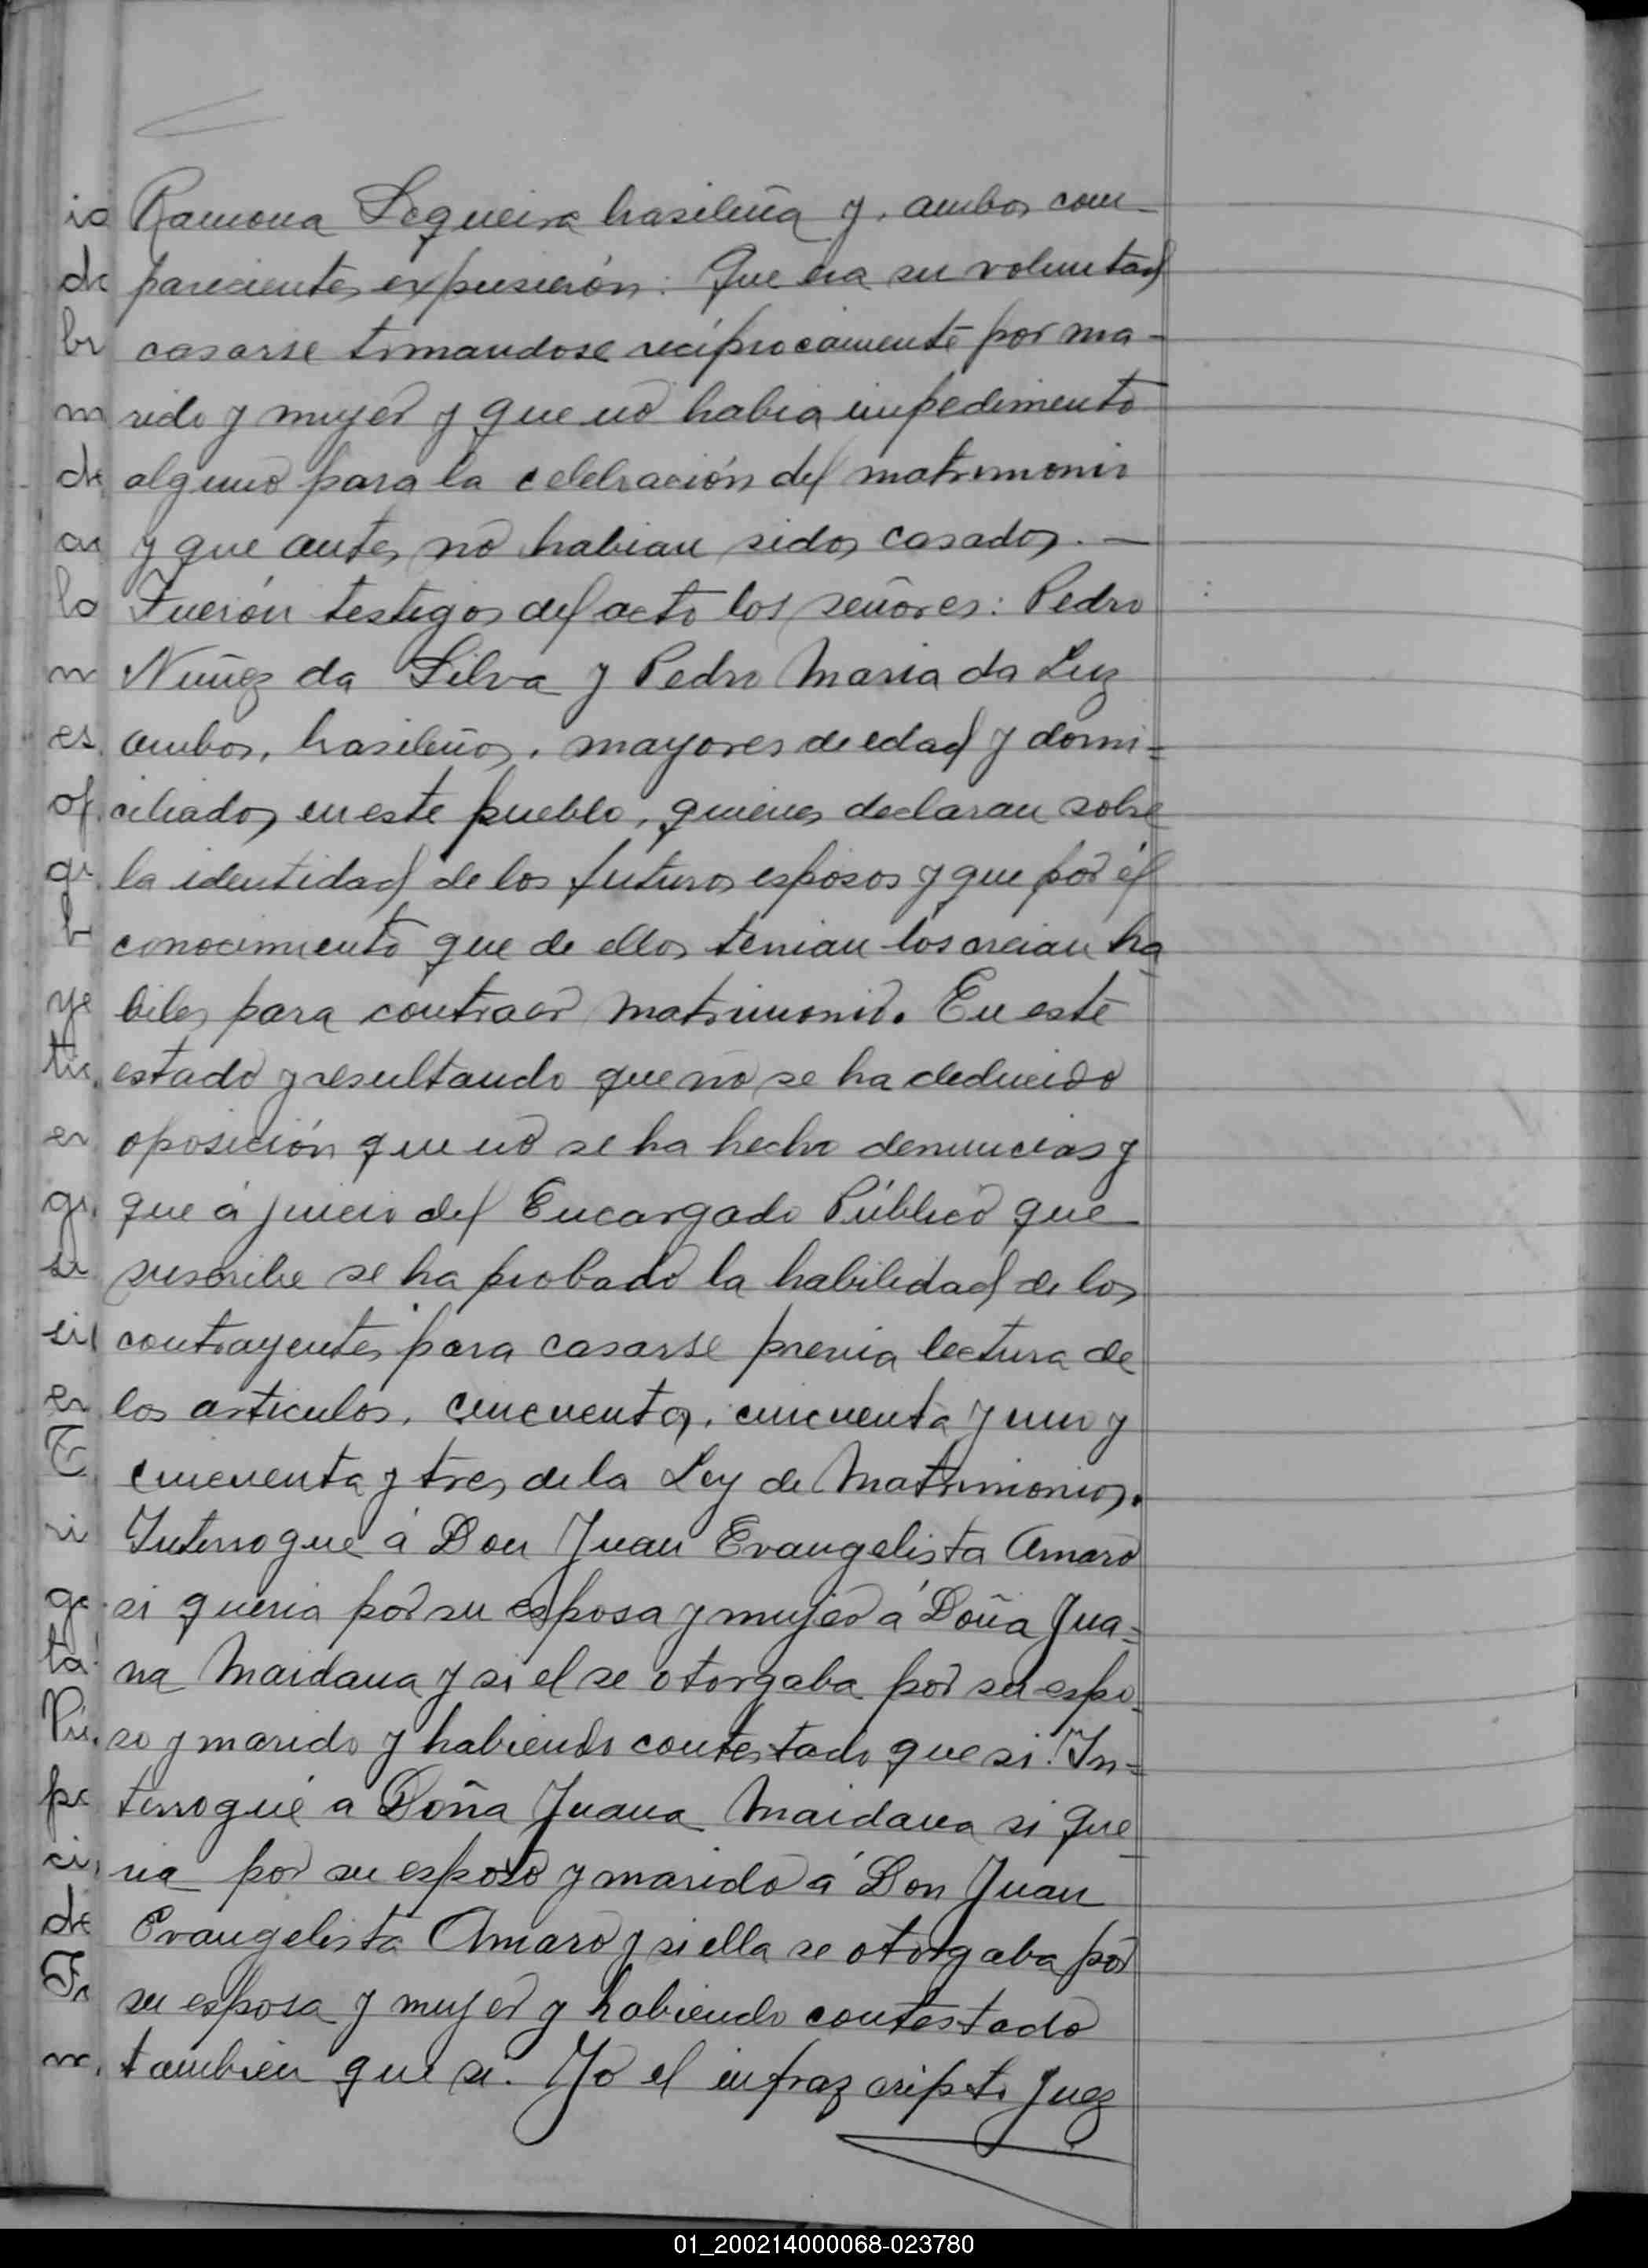 Ramona Sequeira brasileña y, ambos com-
parecientes expusierón: Que era su voluntad
casarse tomandose recíprocamente por ma-
rido y mujer y que no habia impedimento
alguno para la celebración del matrimonio
y que antes no habian sidos casados. —
Fuerón testigos del acto los señores: Pedro
Nuñez da Silva y Pedro Maria da Luz
ambos, brasileños, mayores de edad y domi=
ciliados en este pueblo, quienes declaran sobre
la identidad de los futuros esposos y que por él
conocimiento que de ellos tenian los creian ha
biles para contraer matrimonio. En este
estado y resultando que no se ha deducido
oposición que no se ha hecho denuncias y
que á juicio del Encargado Público que
suscribe se ha probado la habilidad de los
contrayentes para casarse previa lectura de
los artículos, cincuenta, cincuenta y uno y
cincuenta y tres de la Ley de Matrimonios.
Interrogue á Don Juan Evangelista Amaro
si queria por su esposa y mujer á Doña Jua=
na Maidana y si el se otorgaba por su espo-
so y marido y habiendo contestado que si. In=
terrogué a Doña Juana Maidana si que
ria por su esposo y marido á Don Juan
Evangelista Amaro y si ella se otorgaba por
su esposa y mujer y habiendo contestado
tambien que si. Yo el infrazcripto Juez
01_200214000068-023780